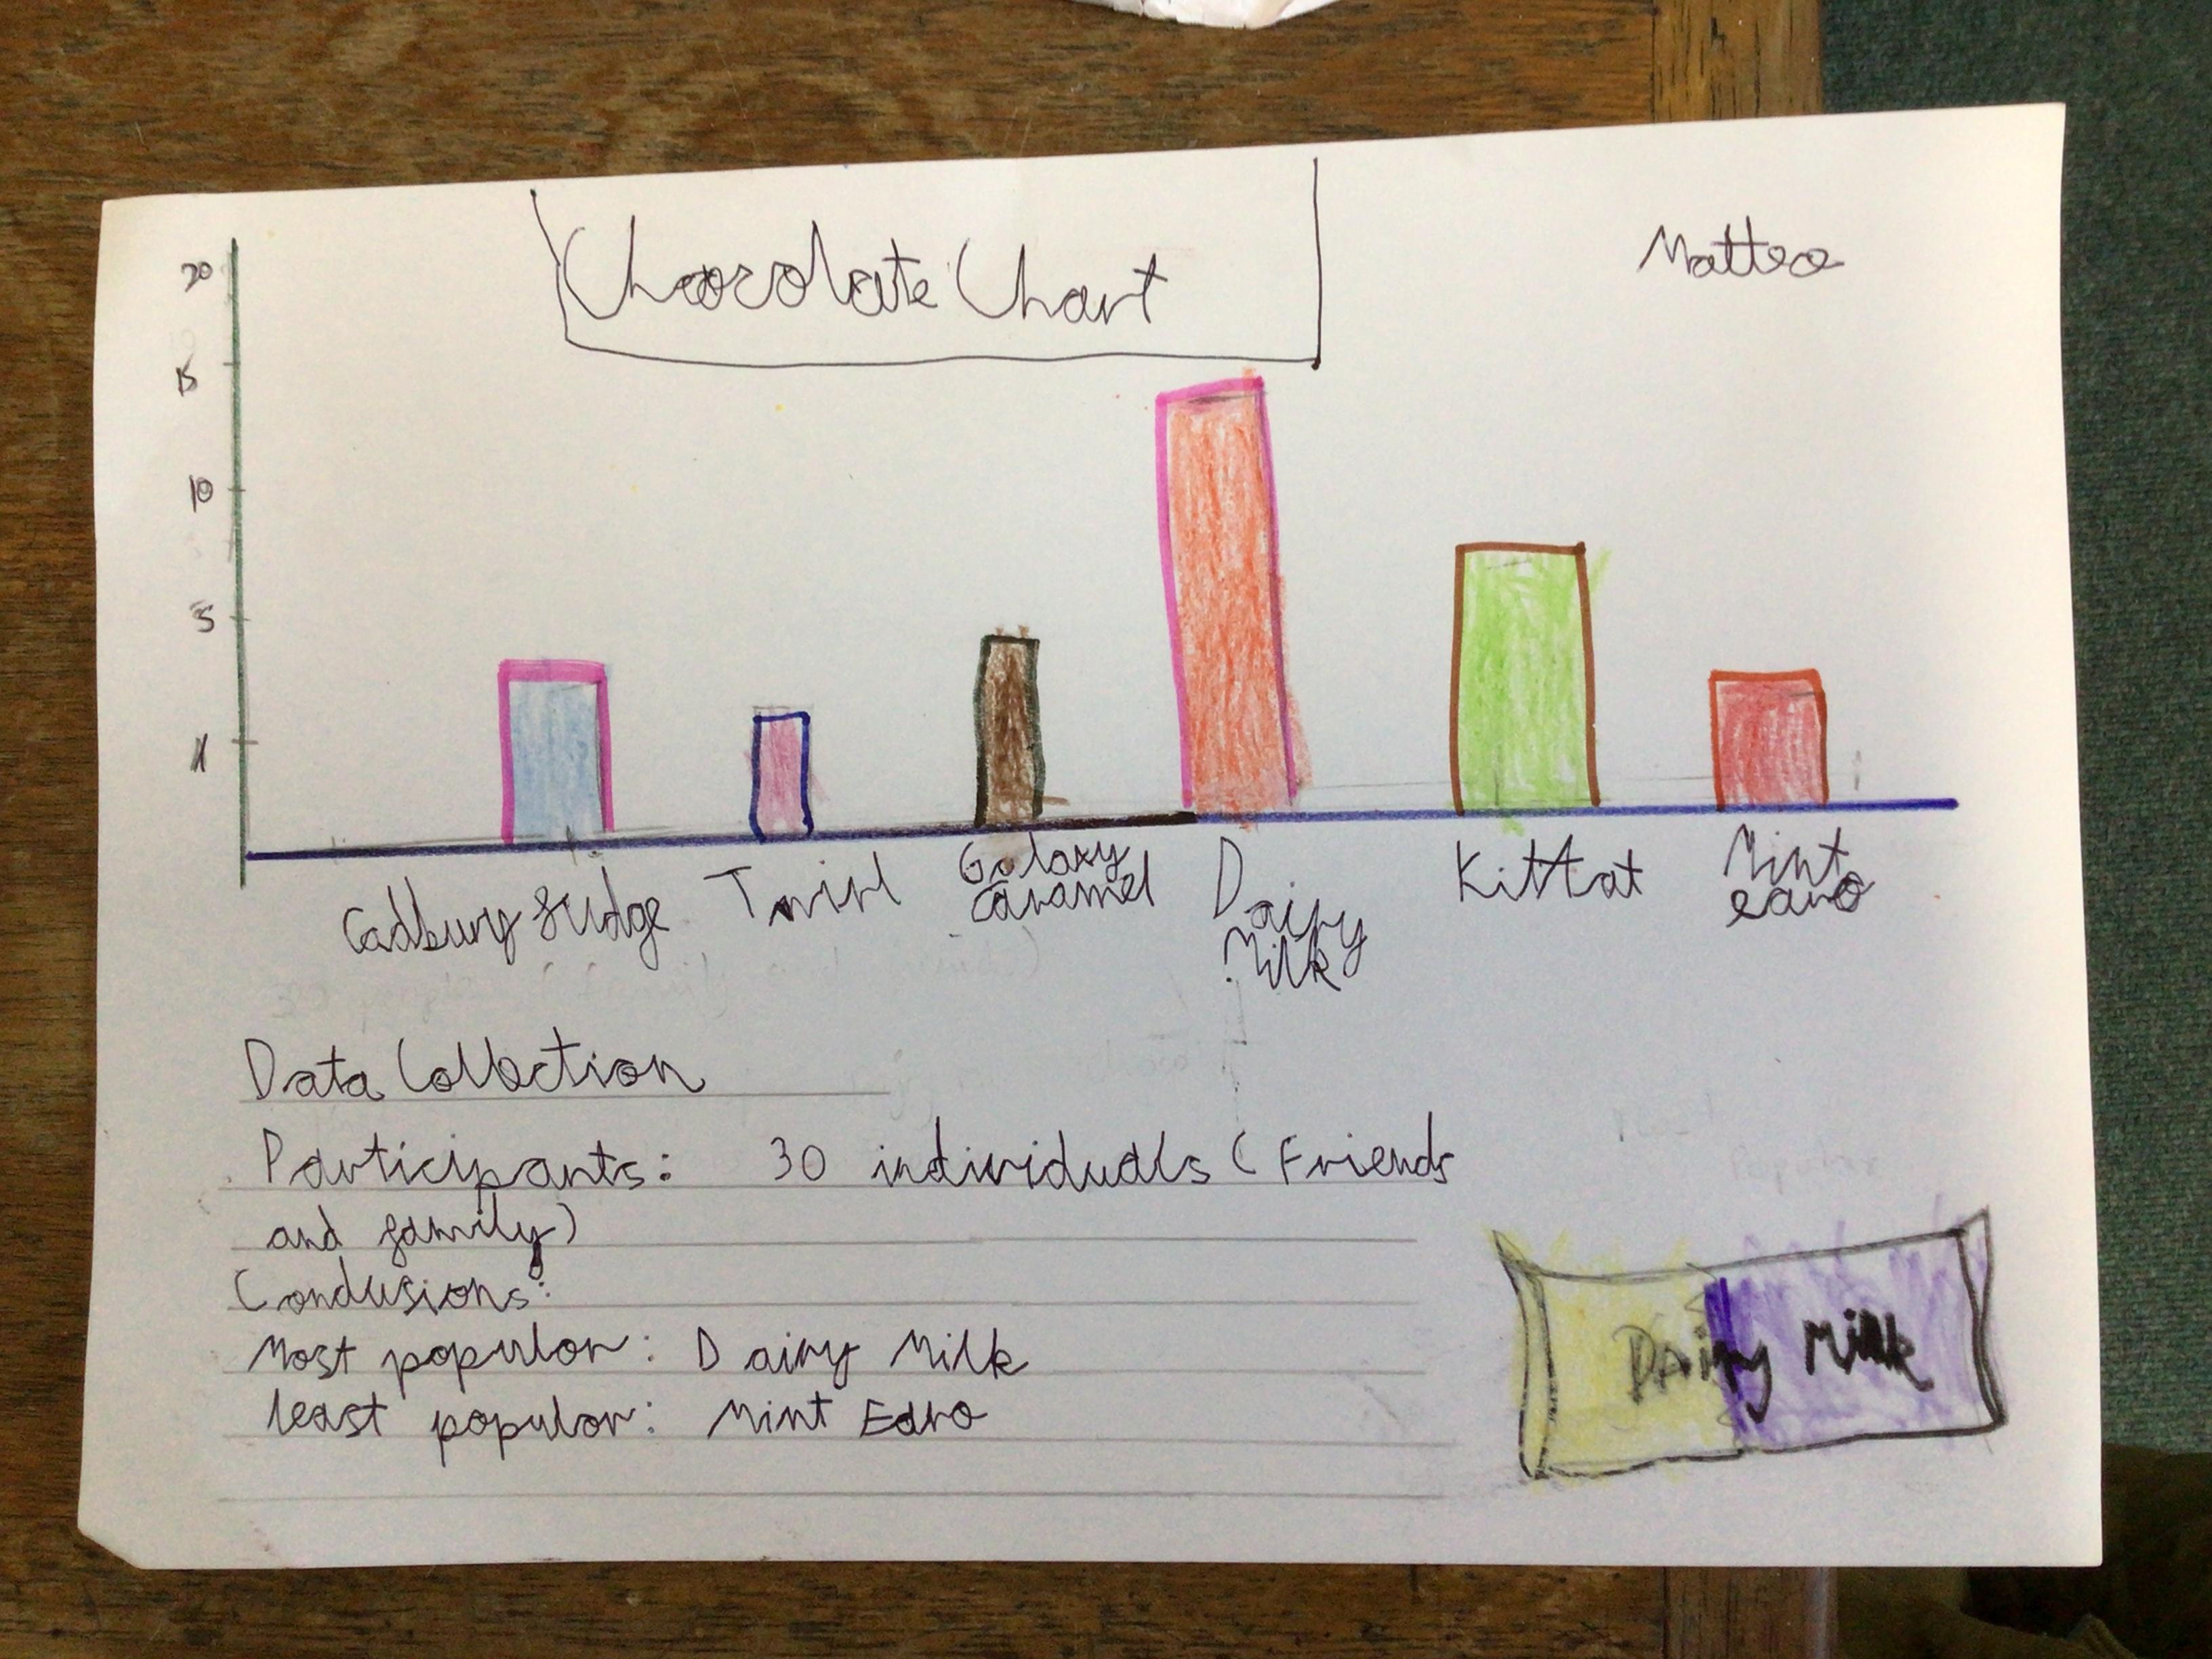 Chocolate Chart
Matteo
20
15
10
5
1
Cadbury fudge
Twirl
Galaxy
Caramel
Dairy
Milk
KitKat
Mint
earo
Data Collection
Participants: 30 individuals (Friends
and family)
Conclusions:
Most popular: Dairy Milk
least popular: Mint Earo
DAiry Milk